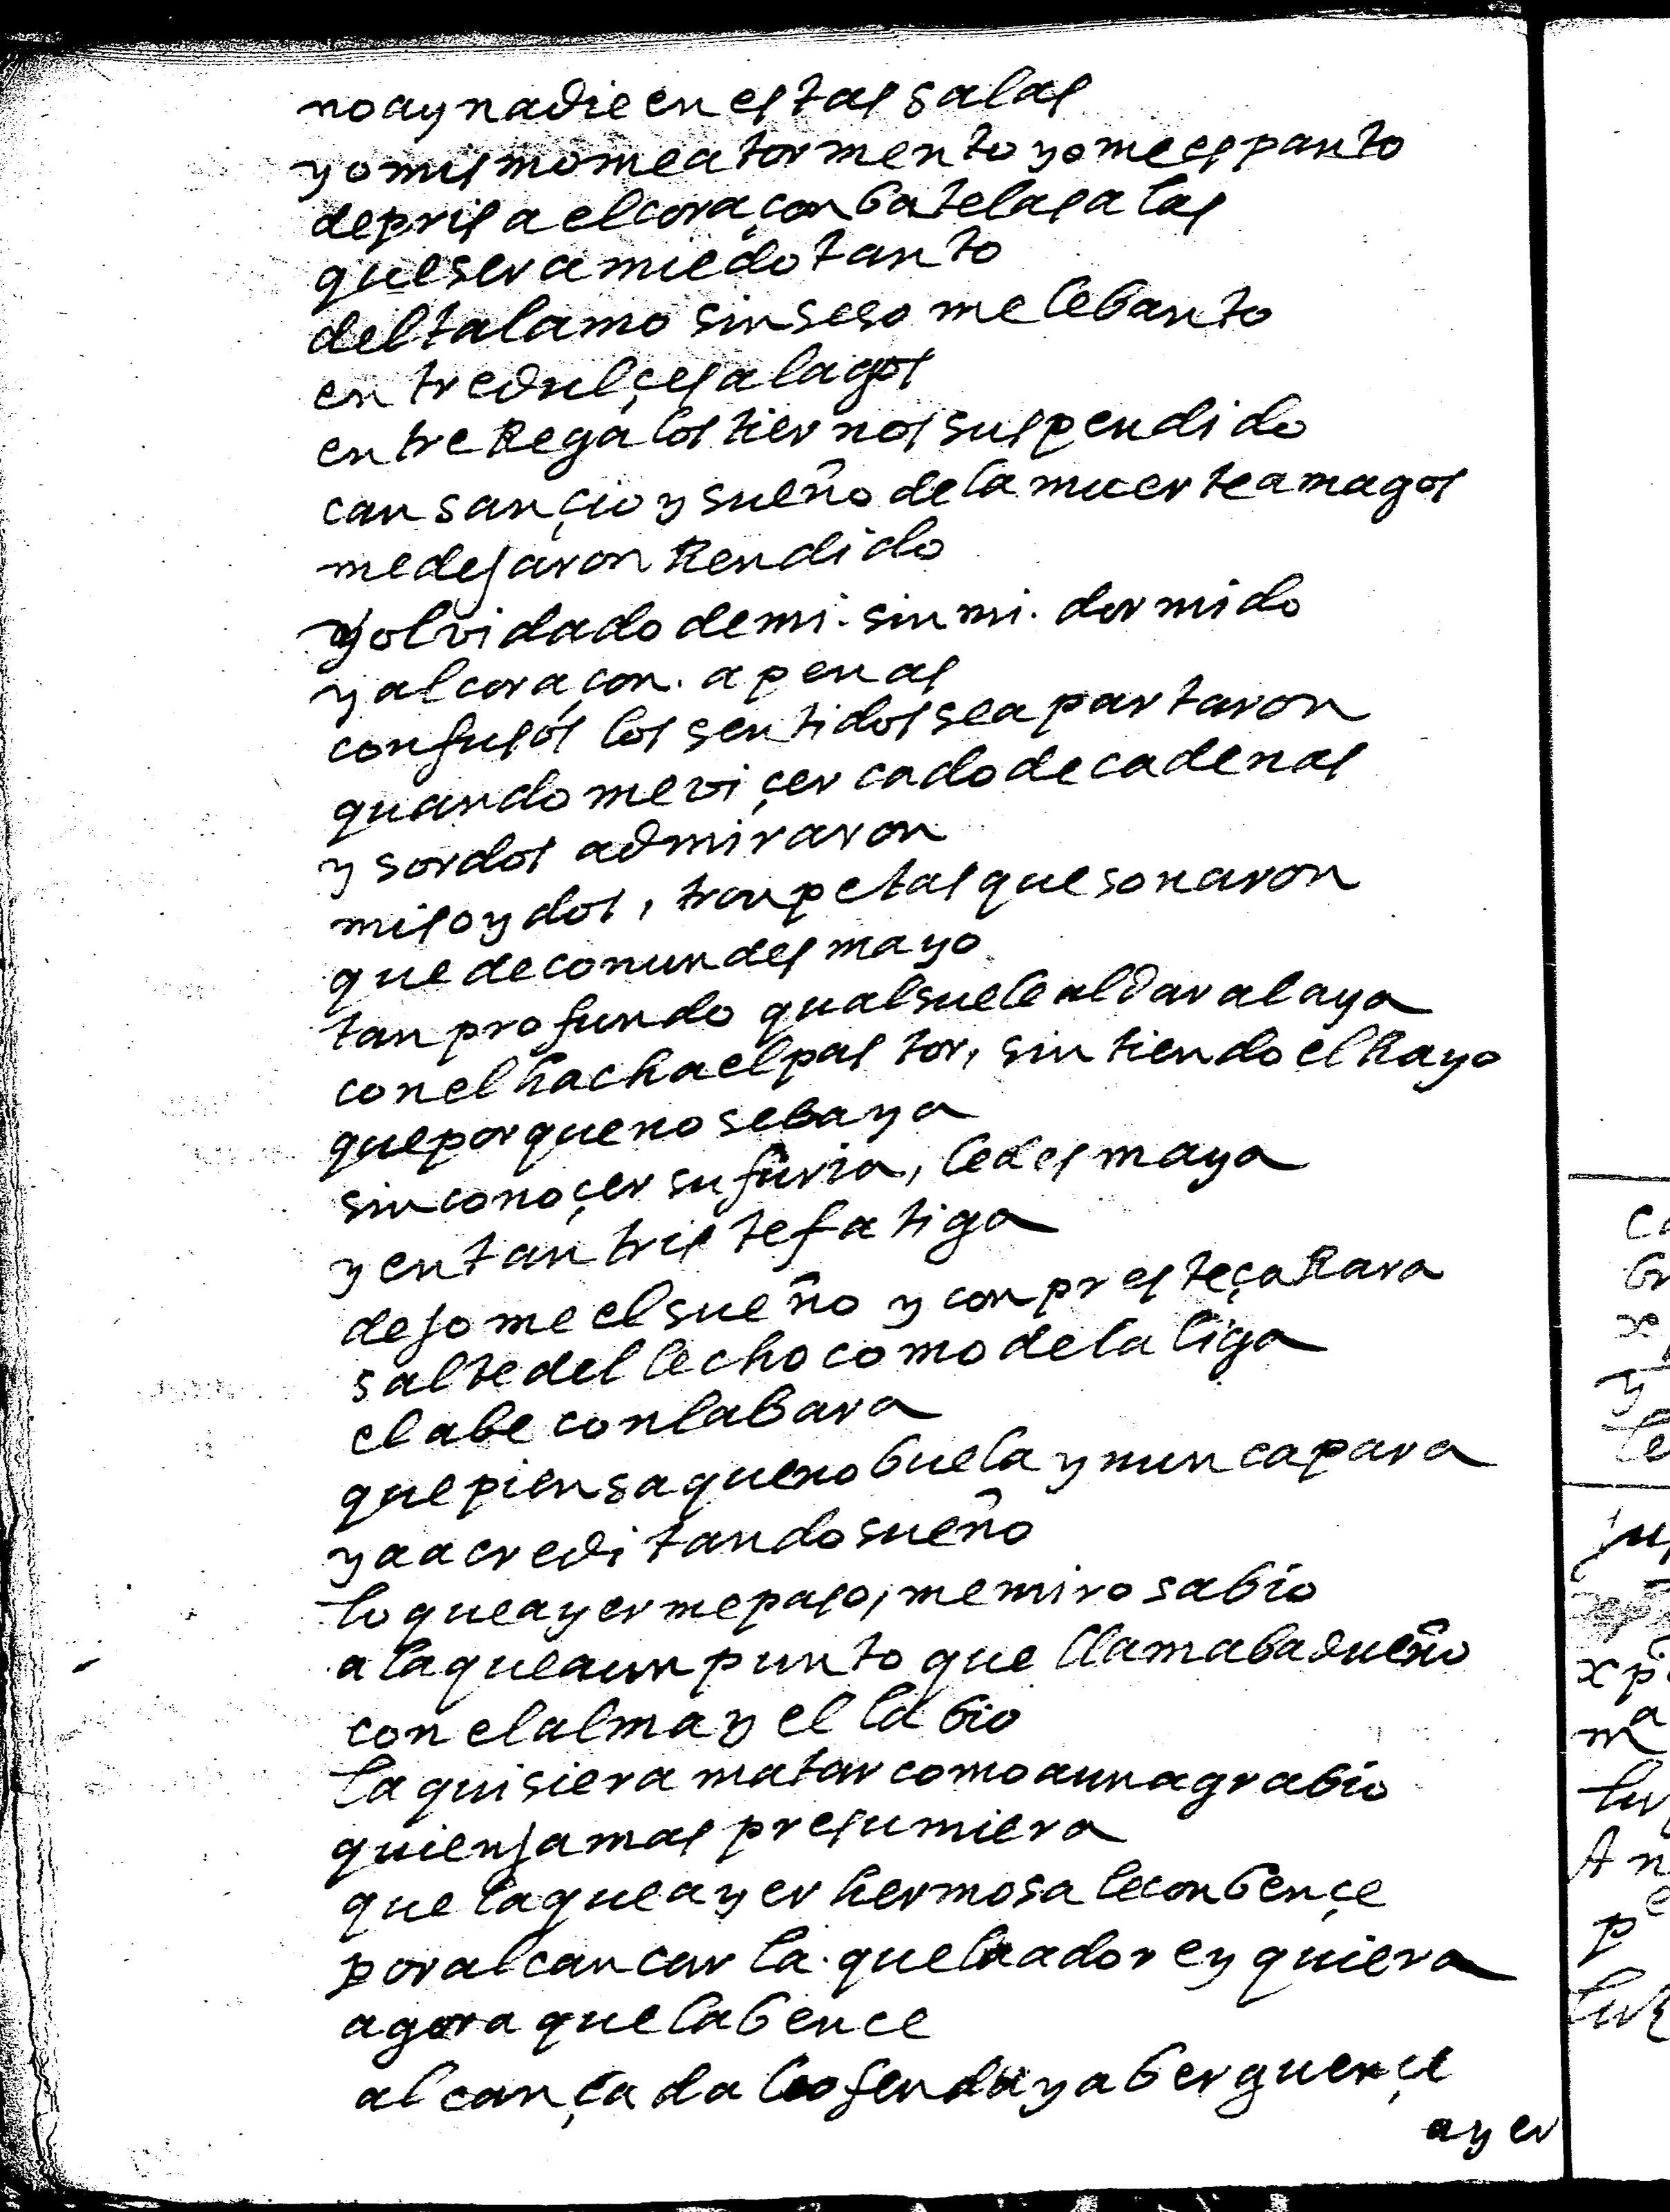 no ay nadie en estas salas
yo mismo me atormento yo me espanto
de prisa el coraçon bate las alas
que sera miedo tanto
del talamo sin seso me lebanto
entre dulçes alagos
entre Regalos tiernos suspendido
cansançio y sueño de la muerte amagos
me dejaron Rendido
y olvidado de mi. sin mi. dormido
y al coraçon. apenas
confusos los sentidos se apartaron
quando me vi çercado de cadenas
y sordos admiraron
mis oydos, tronpetas que sonaron
quede con un desmayo
tan profundo qual suele al dar al aya
con el hacha el pastor, sintiendo el Rayo
que porque no se baya
sin conoçer su furia, le desmaya
y en tan triste fatiga
dejome el sueño y con presteça Rara
salte del lecho como de la liga
el abe con la bara
que piensa que no buela y nunca para
y a acreditando sueño
lo que ayer me paso, me miro sabio
a la que a un punto que llamaba dueño
con el alma y el labio
la quisiera matar como a un agrabio
quien jamas presumiera
que la que ayer hermosa le conbençe
por alcancar la. que la adore y quiera
agora que la bence
alcançada le ofenda y aberguençe
ayer
Ca
br
y
le
ju
xp
ma
luz
An
pe
luz